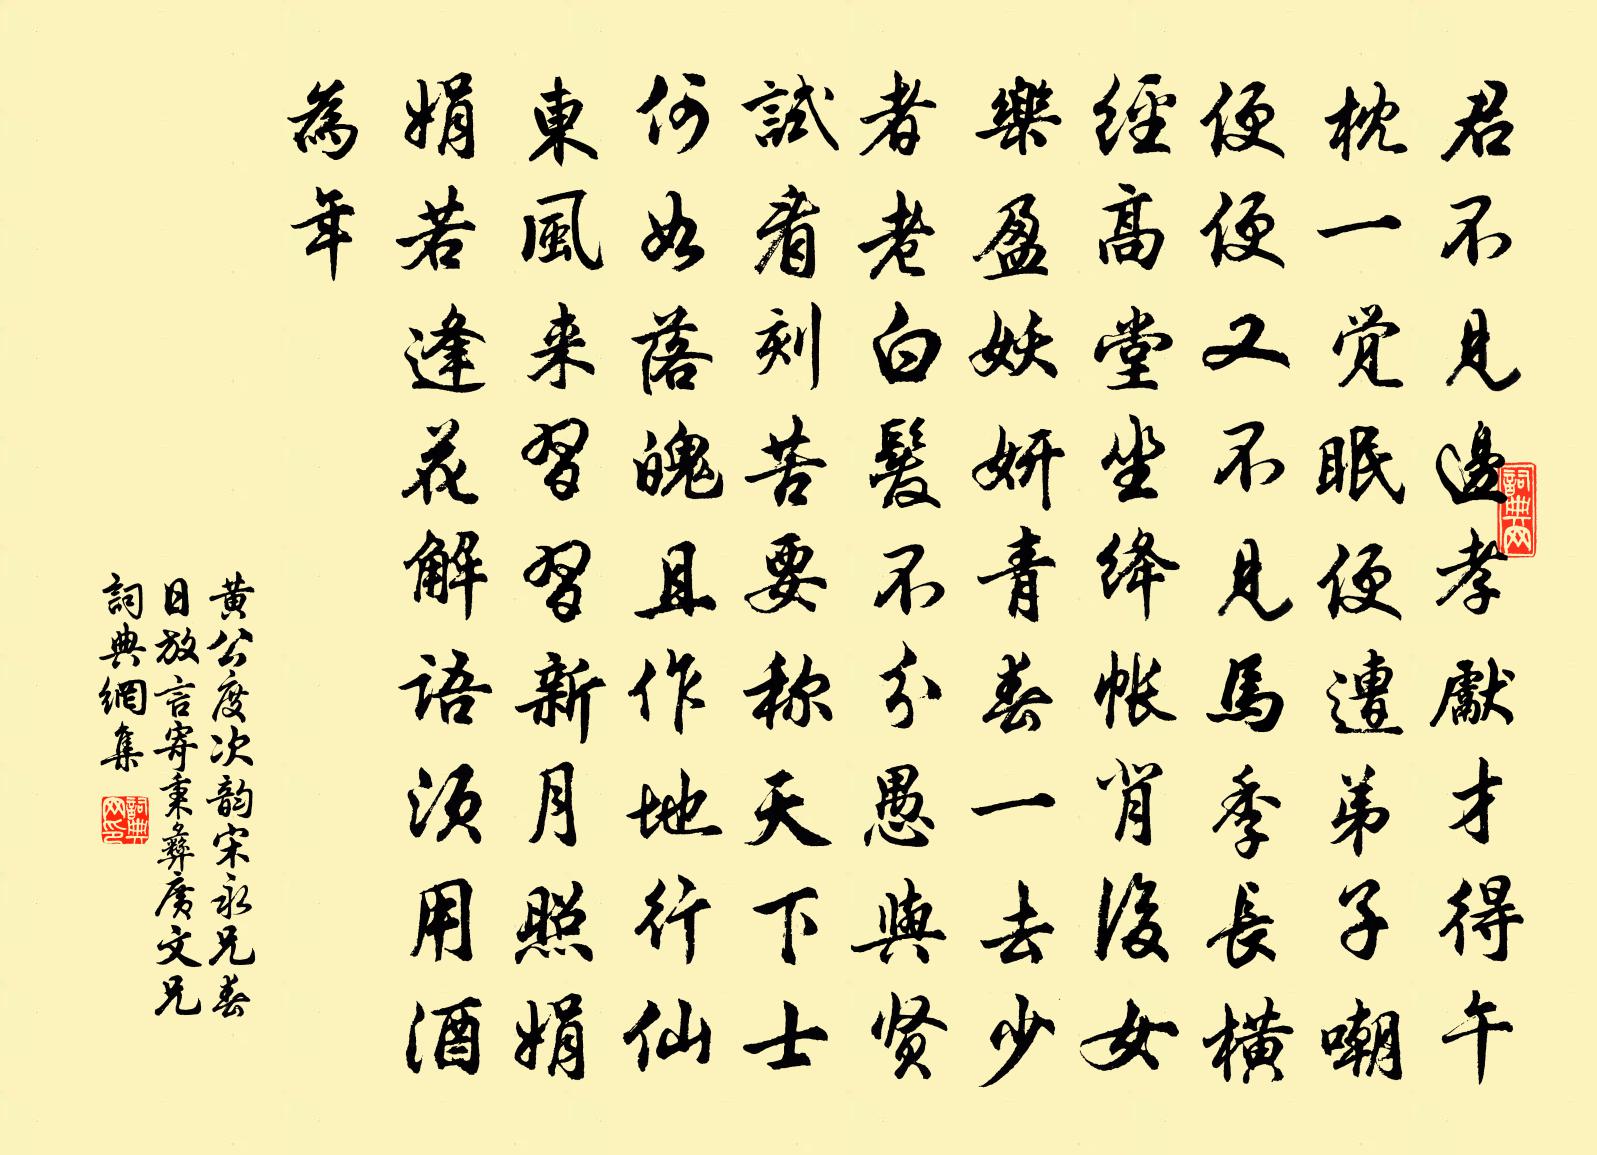 君不見邊孝獻才得午
枕一觉眠便遭弟子嘲
便便又不見馬季長橫
經高堂坐绛帐肖後女
樂盈妖妍青春一去少
者老白髮不分愚與贤
試看刻苦要称天下士
何如落魄且作地行仙
東風来習習新月照娟
娟若逢花解语须用酒
為年
黄公度次韵宋永兄春
日放言寄秉彝廣文兄
詞典網集
詞典网
詞典网印